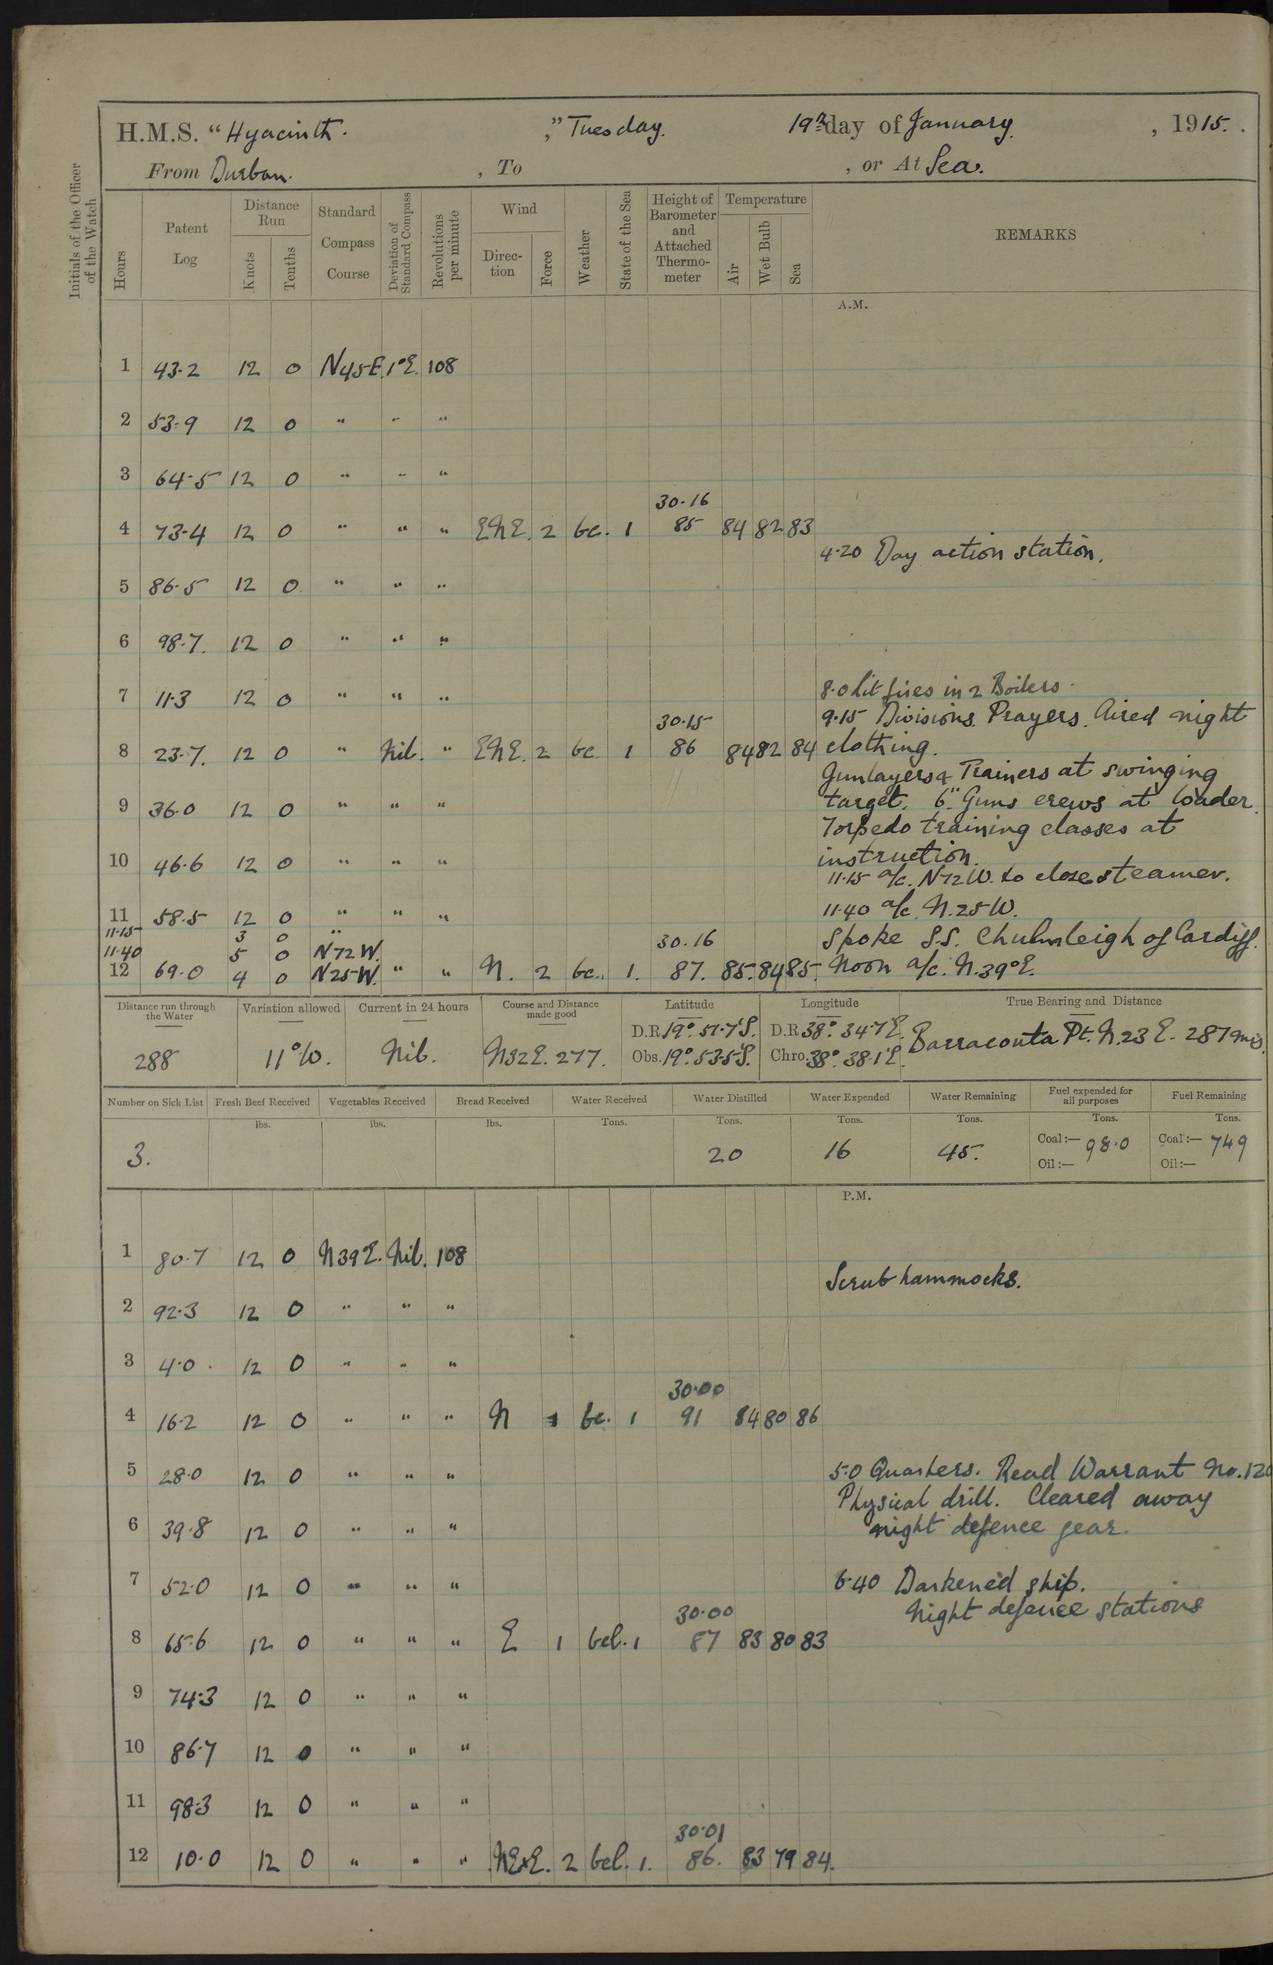 H.M.S. "Hyacinth. ," Tuesday. 19th day of January, 1915.
From Durban. , To , or At Sea.
Initials of the Officer of the Watch
Hours
Patent Log
Distance Run
Knots
Tenths
Standard Compass Course
Deviation of Standard Compass
Revolutions per minute
Wind
Direction
Force
Weather
State of the Sea
Height of Barometer and Attached Thermometer
Temperature
Air
Wet Bulb
Sea
REMARKS
A.M.
1 43.2 12 0 N45E 1°E. 108
2 53.9 12 0 " " "
3 64.5 12 0 " " "
30.16
4 73.4 12 0 " " " ENE. 2 bc. 1 85 84 82 83
4.20 Day action station.
5 86.5 12 0 " " "
6 98.7. 12 0 " " "
8.0 Lit fires in 2 Boilers.
7 11.3 12 0 " " "
30.15
9.15 Divisions. Prayers. Aired night
8 23.7. 12 0 " Nil. " ENE. 2 bc. 1 86 84 82 84 clothing.
Gunlayers & Trainers at swinging
9 36.0 12 0 " " " target. 6". Guns crews at loader.
Torpedo training classes at
10 46.6 12 0 " " " instruction.
11.15 a/c. N72W. to close steamer.
11 58.5 12 0 " " " 11.40 a/c. N.25W.
11.15 3 0 "
30.16 Spoke S.S. Chulmleigh of Cardiff.
11.40 5 0 N72W.
12 69.0 4 0 N25W. " " N. 2 bc. 1. 87. 85. 84 85. Noon a/c. N.39°E.
Distance run through the Water
Variation allowed
Current in 24 hours
Course and Distance made good
Latitude
Longitude
True Bearing and Distance
D.R 19°. 51.7'S. D.R 38°. 34.7'E.
288 11°W. Nil. N32E. 277. Obs. 19°. 53.5'S. Chro. 38°. 38.1'E. Barracouta Pt. N.23E. 287 mis.
Number on Sick List
Fresh Beef Received
Vegetables Received
Bread Received
Water Received
Water Distilled
Water Expended
Water Remaining
Fuel expended for all purposes
Fuel Remaining
lbs. lbs. lbs. Tons. Tons. Tons. Tons. Tons. Tons.
3. 20 16 45. Coal:— 98.0 Coal:— 749
Oil:— Oil:—
P.M.
1 80.7 12 0 N39E. Nil. 108
Scrub hammocks.
2 92.3 12 0 " " "
3 4.0 12 0 " " "
30.00
4 16.2 12 0 " " " N 1 bc. 1 91 84 80 86
5 28.0 12 0 " " " 5.0 Quarters. Read Warrant No.120
Physical drill. Cleared away
6 39.8 12 0 " " " night defence gear.
7 52.0 12 0 " " " 6.40 Darkened ship.
30.00 Night defence stations
8 65.6 12 0 " " " E 1 bcl. 1 87 83 80 83
9 74.3 12 0 " " "
10 86.7 12 0 " " "
11 98.3 12 0 " " "
30.01
12 10.0 12 0 " " " NExE. 2 bcl. 1. 86. 83 79 84.